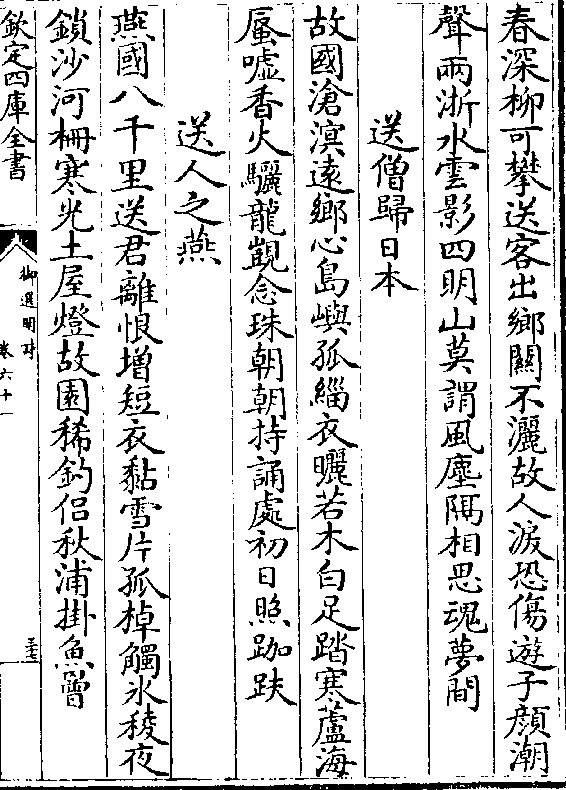 春深柳可攀送客出鄉關不灑故人淚恐傷遊子顔潮
聲兩浙水雲影四明山莫謂風塵隔相思魂夢間
送僧歸日本
故國滄溟遠鄉心島嶼孤緇衣曬若木白足踏寒蘆海
蜃噓香火驪龍觀念珠朝朝持誦處初日照跏趺
送人之燕
燕國八千里送君離恨增短衣黏雪片孤棹觸氷稜夜
鎖沙河柵寒光土屋燈故園稀釣侣秋浦掛魚罾
欽定四庫全書
御選明詩
卷六十一